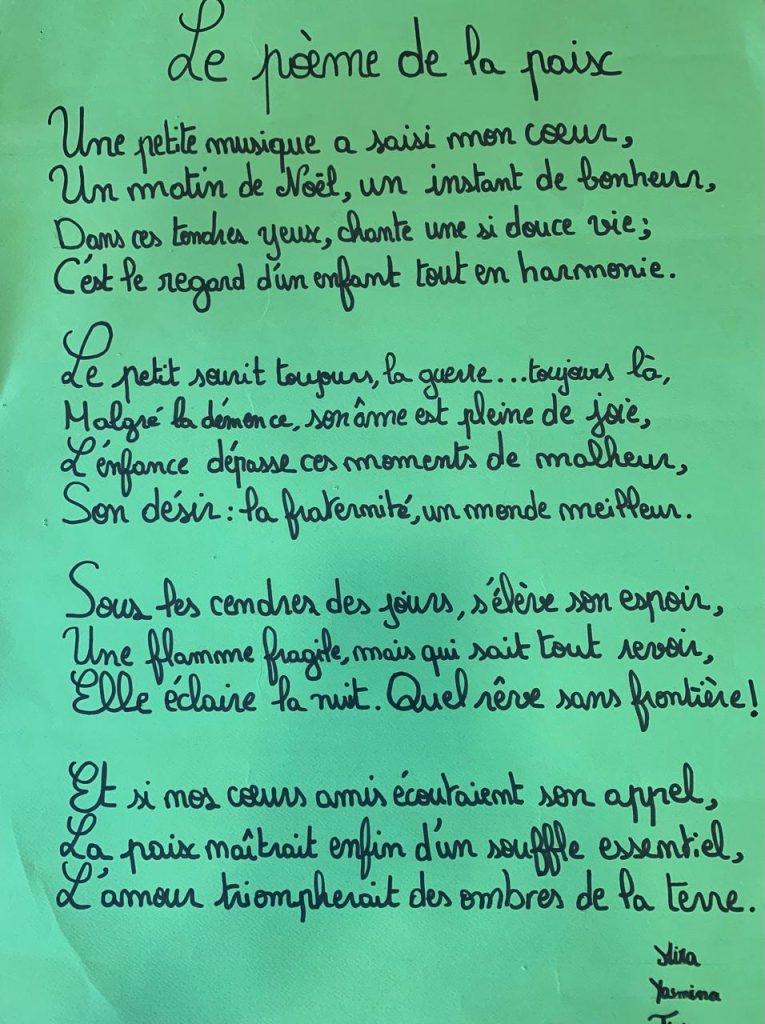 Le poème de la paix
Une petite musique a saisi mon coeur,
Un matin de Noël, un instant de bonheur,
Dans ces tendres yeux, chante une si douce vie;
C'est le regard d'un enfant tout en harmonie.
Le petit sourit toujours, la guerre...toujours là,
Malgré la démence, son âme est pleine de joie,
L'enfance dépasse ces moments de malheur,
Son désir: la fraternité, un monde meilleur.
Sous les cendres des jours, s'élève son espoir,
Une flamme fragile, mais qui sait tout revoir,
Elle éclaire la nuit. Quel rêve sans frontière!
Et si nos cœurs amis écoutaient son appel,
La paix naîtrait enfin d'un souffle essentiel,
L'amour triompherait des ombres de la terre.
Yasmina